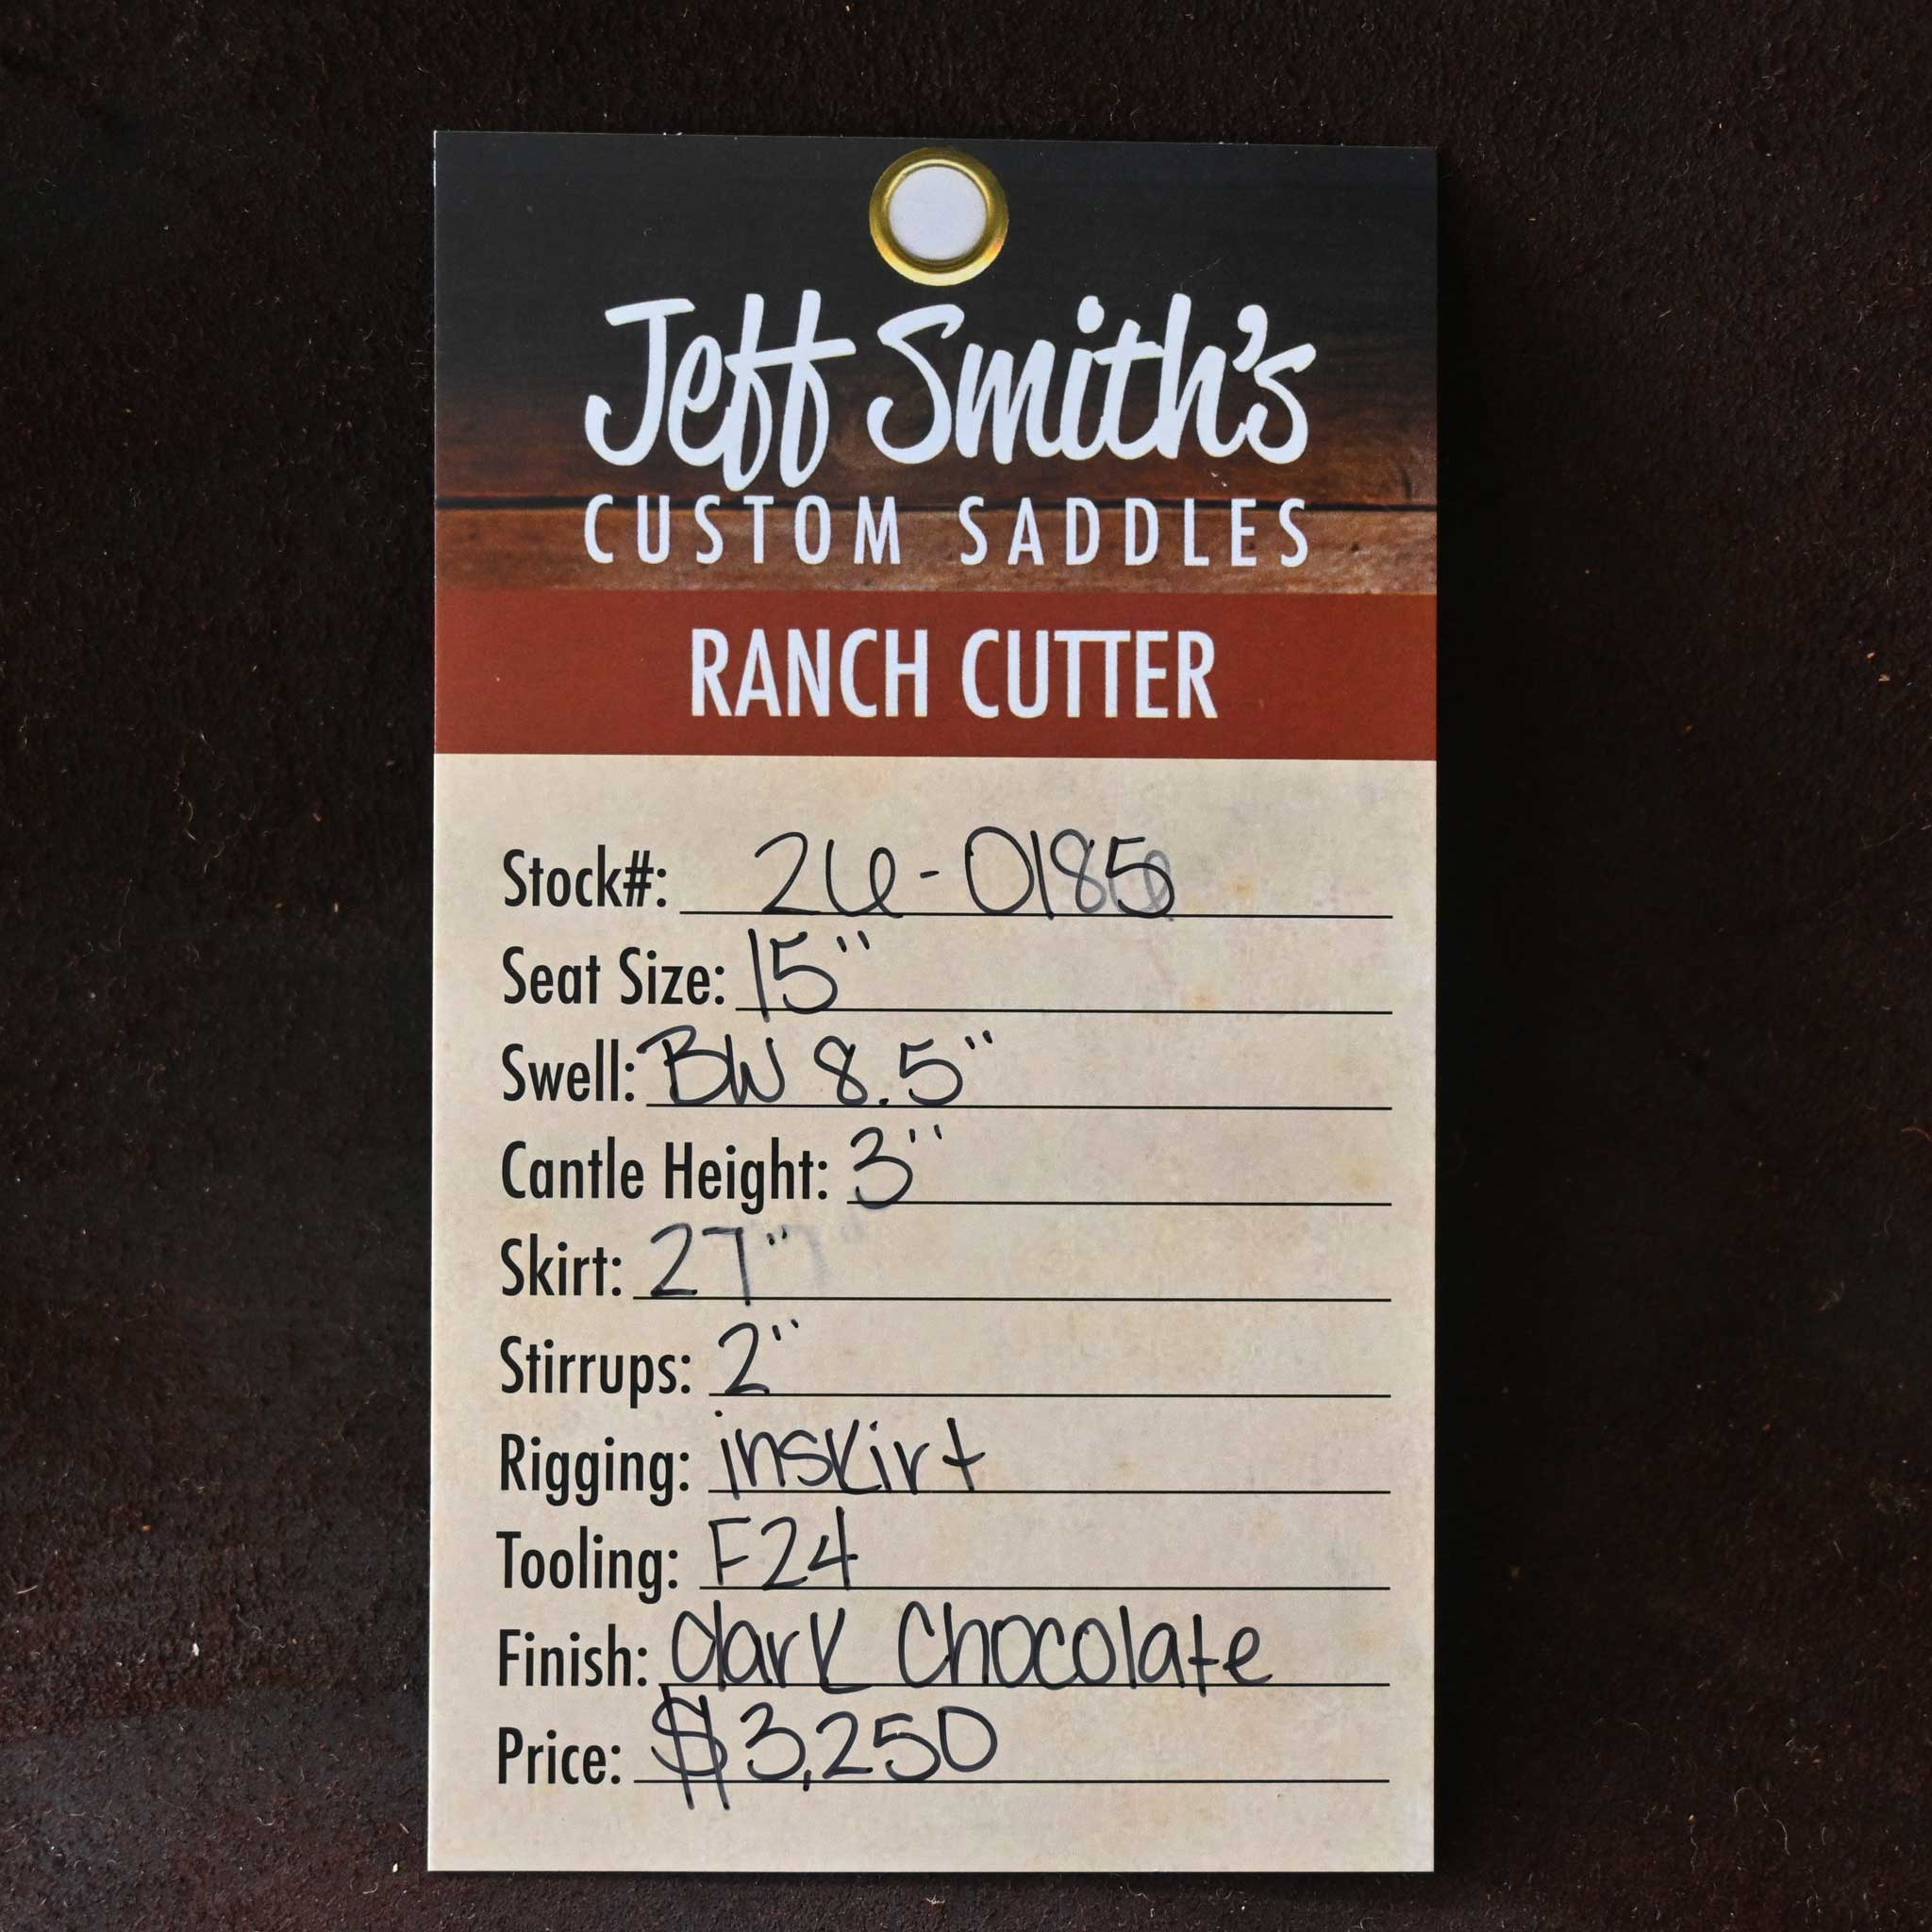 Jeff Smith's
CUSTOM SADDLES
RANCH CUTTER
Stock#: 26-0185
Seat Size: 15"
Swell: BW 8.5"
Cantle Height: 3"
Skirt: 27"
Stirrups: 2"
Rigging: inskirt
Tooling: F24
Finish: dark Chocolate
Price: $3,250